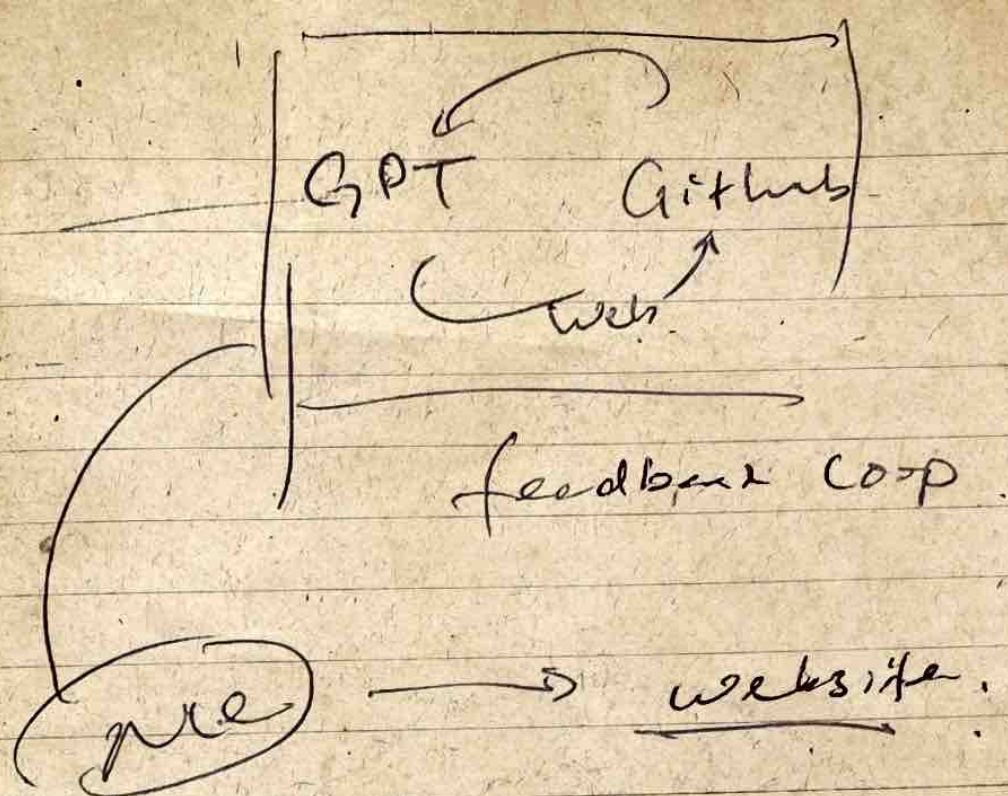 GPT Github
web
feedback loop
website.